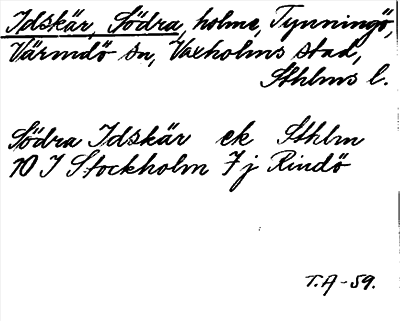 Idskär, Södra, holme, Tynningö,
Värmdö sn, Vaxholms stad,
Sthlms l.
Södra Idskär ek Sthlm
10 I Stockholm 7 j Rindö
T.A-59.